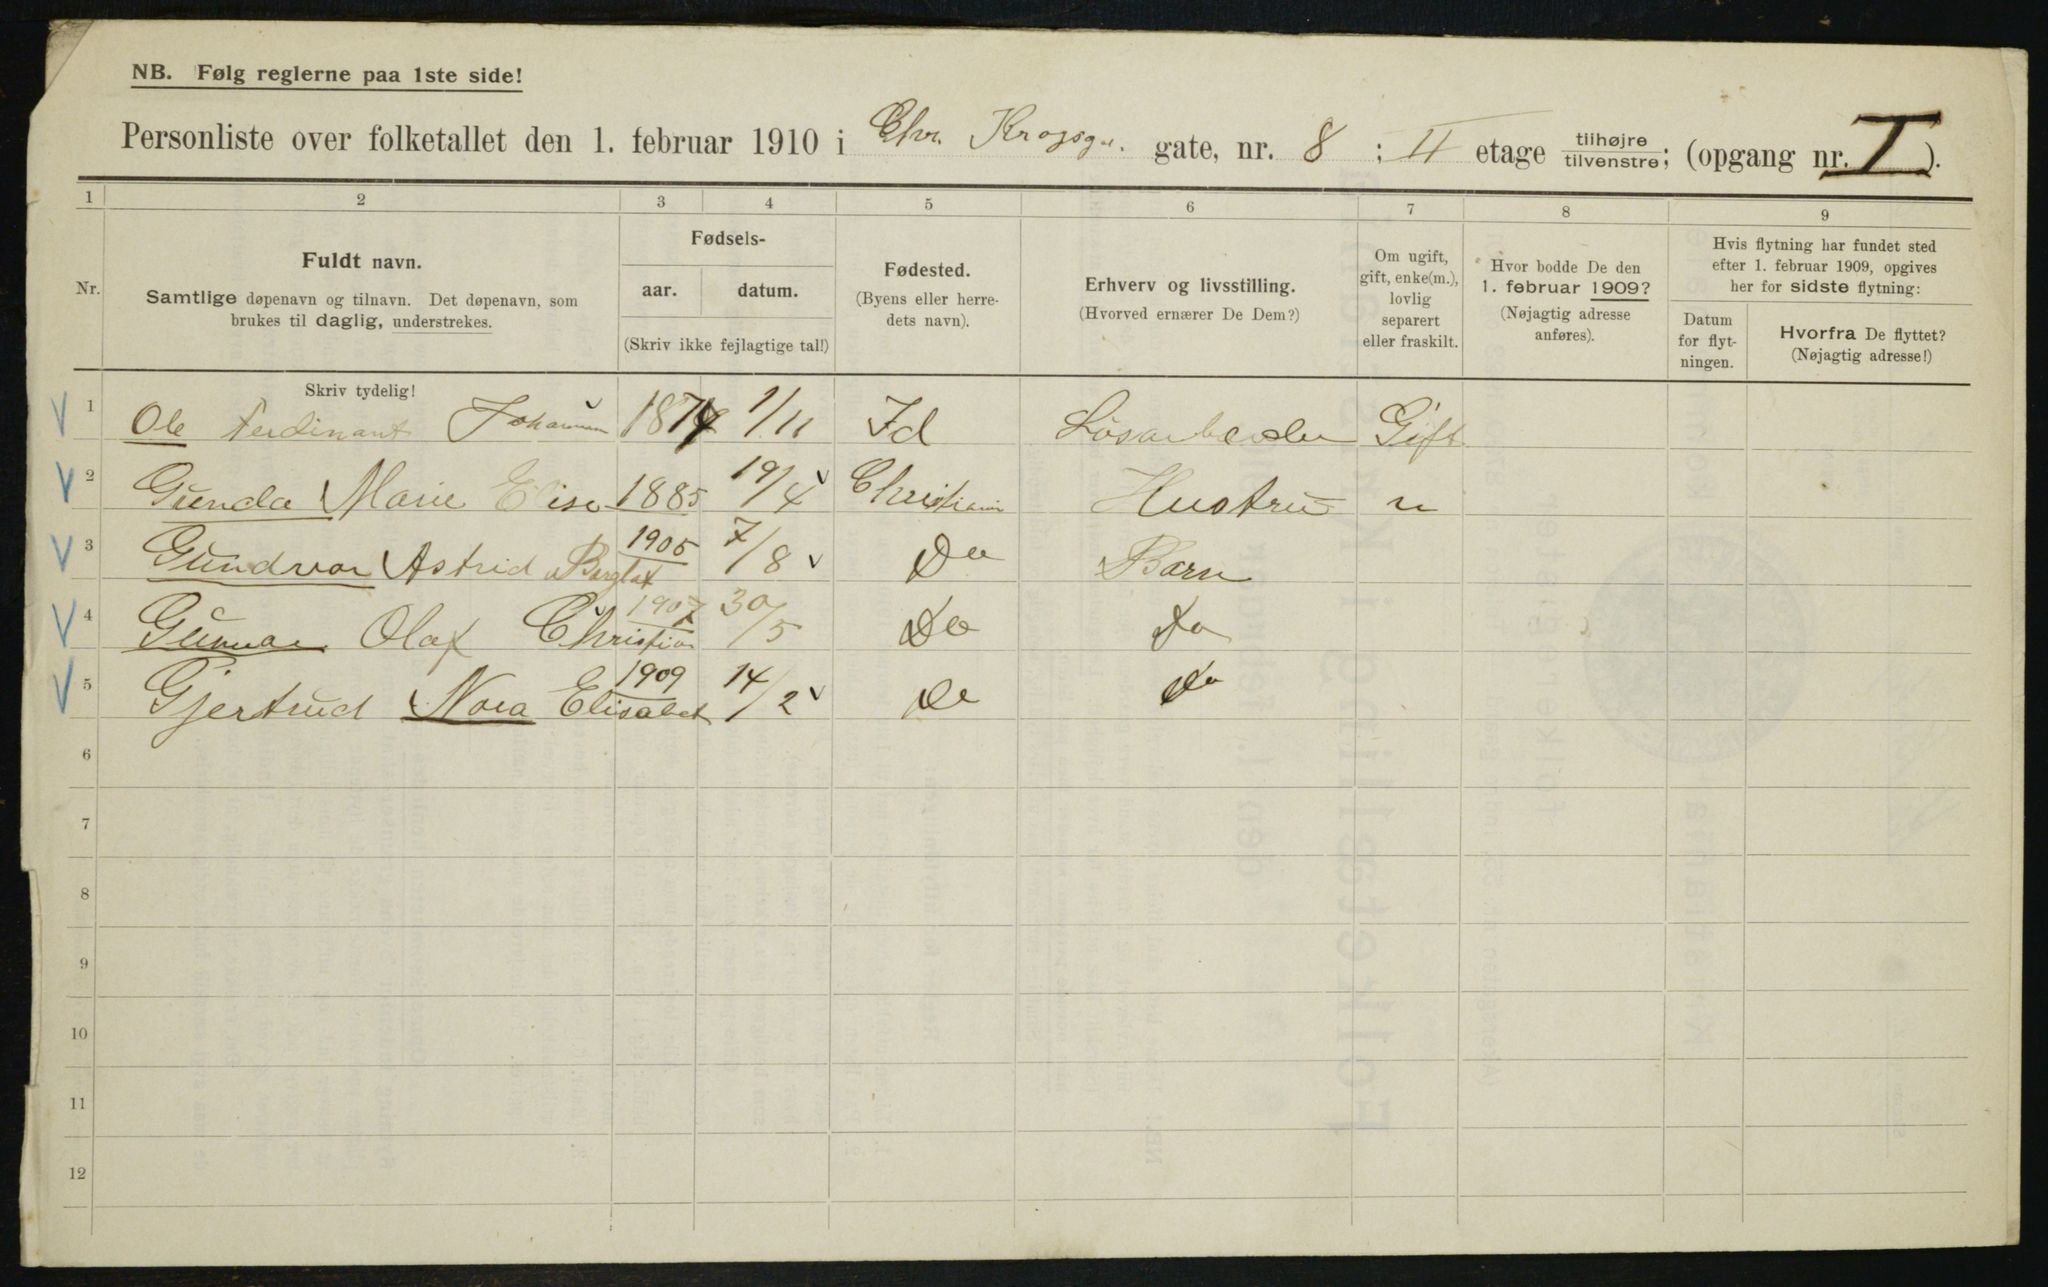 NB. Følg reglerne paa 1ste side!
Personliste over folketallet den 1. februar 1910 i Chr. Krogsgt. gate, nr. 8 : II etage tilhøjre tilvenstre; (opgang nr. I).
1 2 3 4 5 6 7 8 9
Nr.
Fuldt navn.
Samtlige døpenavn og tilnavn. Det døpenavn, som
brukes til daglig, understrekes.
Fødsels-
aar. datum.
(Skriv ikke fejlagtige tal!)
Fødested.
(Byens eller herre-
dets navn).
Erhverv og livsstilling.
(Hvorved ernærer De Dem?)
Om ugift,
gift, enke(m.),
lovlig
separert
eller fraskilt.
Hvor bodde De den
1. februar 1909?
(Nøjagtig adresse
anføres).
Hvis flytning har fundet sted
efter 1. februar 1909, opgives
her for sidste flytning:
Datum
for flyt-
ningen.
Hvorfra De flyttet?
(Nøjagtig adresse!)
Skriv tydelig!
1 Ole Ferdinant Johansen 1874 1/11 Id Løsarbeider Gift
2 Gunda Marie Elise 1885 19/4 Christiania Hustru "
3 Gundvor Astrid 1905 7/8 Do Barn
4 Gunnar Olaf Christian 1907 30/5 Do Do
5 Gjertrud Nora Elisabet 1909 14/2 Do Do
6
7
8
9
10
11
12